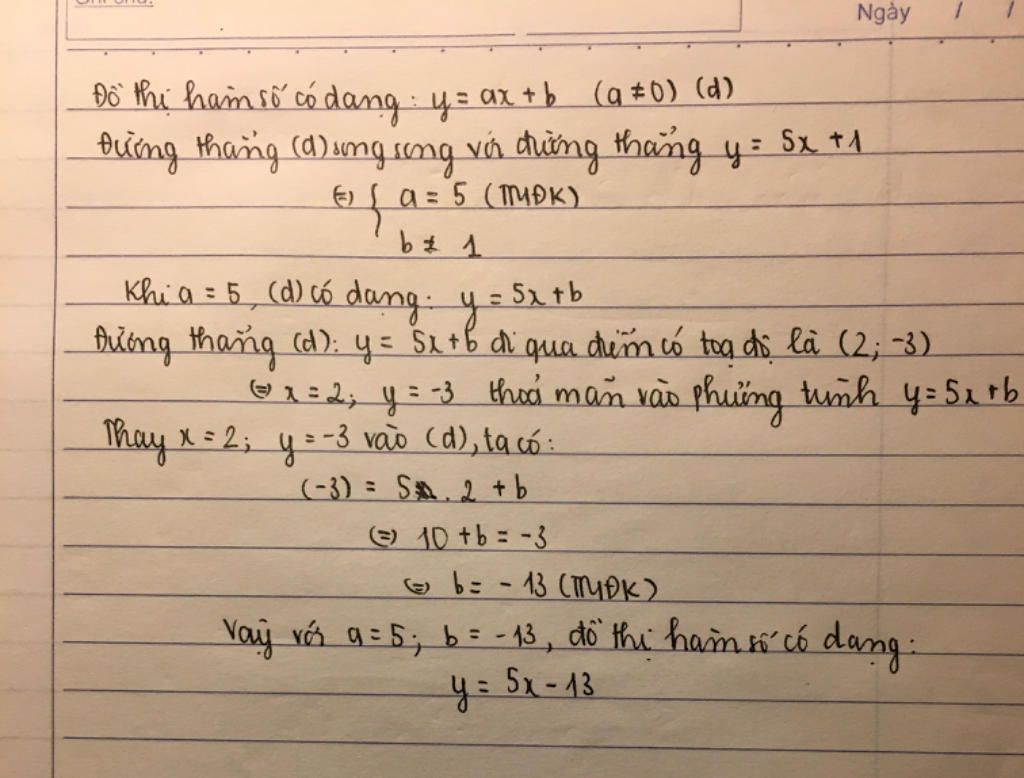 Ngày / /
Đồ thị hàm số có dạng: y = ax + b (a ≠ 0) (d)
Đường thẳng (d) song song với đường thẳng y = 5x + 1
⇔ { a = 5 (TMĐK)
b ≠ 1
Khi a = 5, (d) có dạng: y = 5x + b
Đường thẳng (d): y = 5x + b đi qua điểm có toạ độ là (2; -3)
⇔ x = 2; y = -3 thoả mãn vào phương trình y = 5x + b
Thay x = 2; y = -3 vào (d), ta có:
(-3) = 5 . 2 + b
⇔ 10 + b = -3
⇔ b = - 13 (TMĐK)
Vậy với a = 5; b = -13, đồ thị hàm số có dạng:
y = 5x - 13